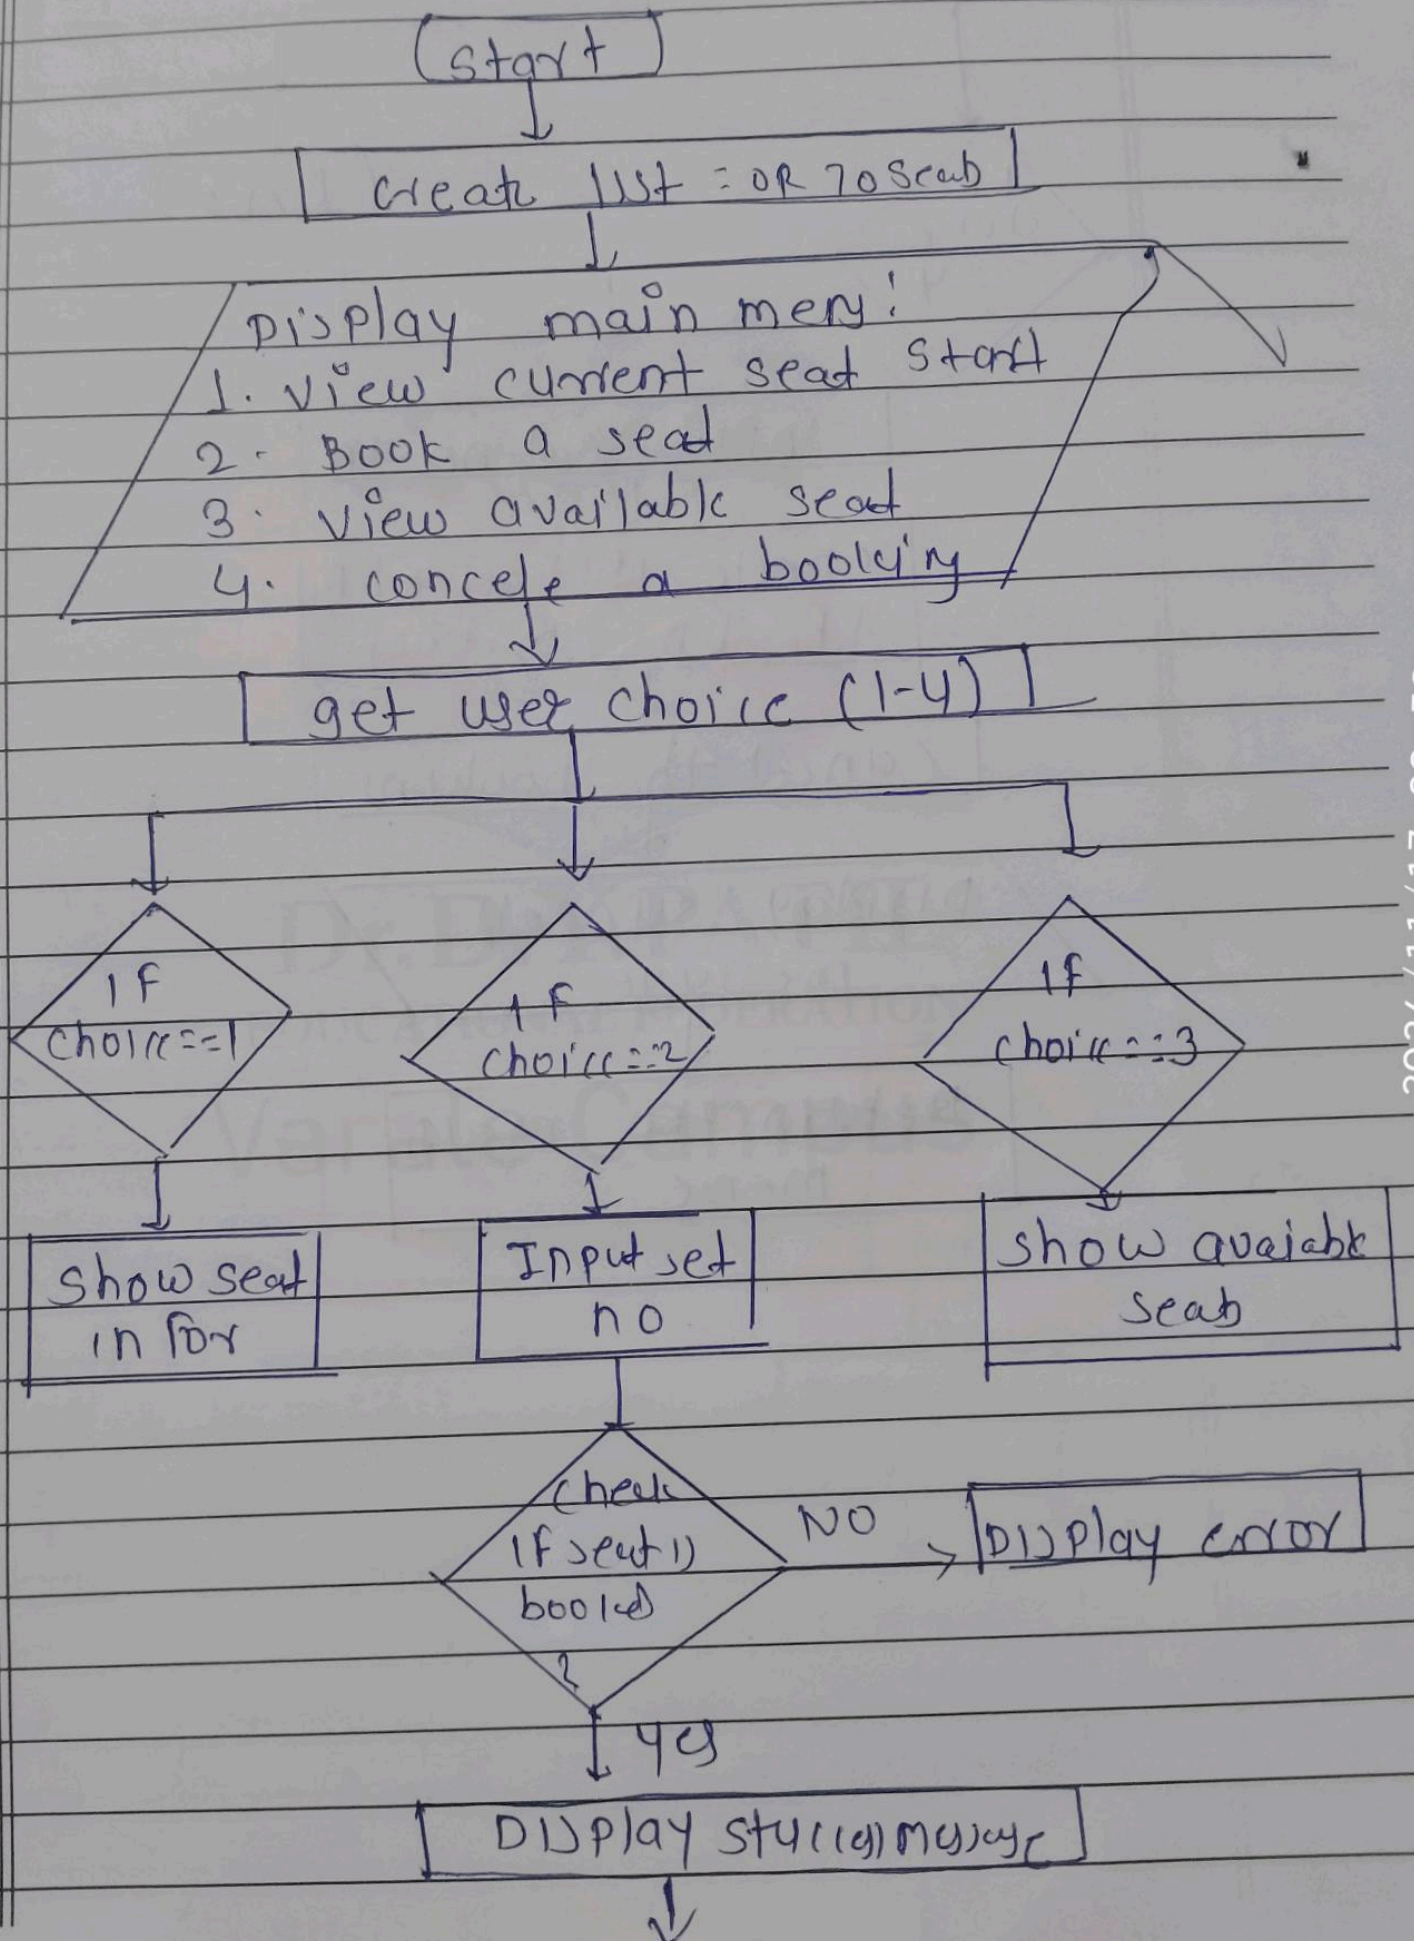 Start
Create list = OR 70 Seats
Display main meny:
1. View current seat start
2. Book a seat
3. View available seat
4. concele a booking
get user choice (1-4)
If
choice==1
If
choice==2
If
choice==3
Show seat
in for
Input set
no
Show avaiable
seats
check
If seat is
booked
?
NO
Display error
Yes
Display message